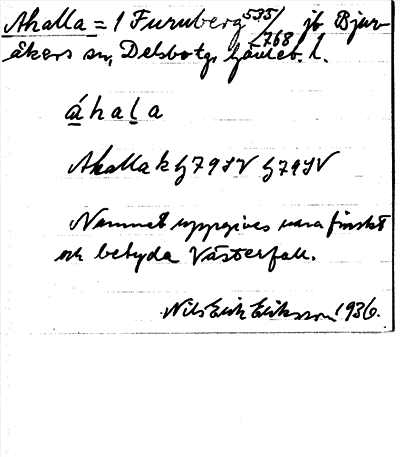 Ahalla = 1 Furuberg 535/768 jb Bjur-
åkers sn, Delsbo tg, Gävleb. l.
áhala
Ahalla k G79SV G79SV
Namnet uppgives vara finskt
och betyda Västerfall.
Nils Erik Eriksson 1936.